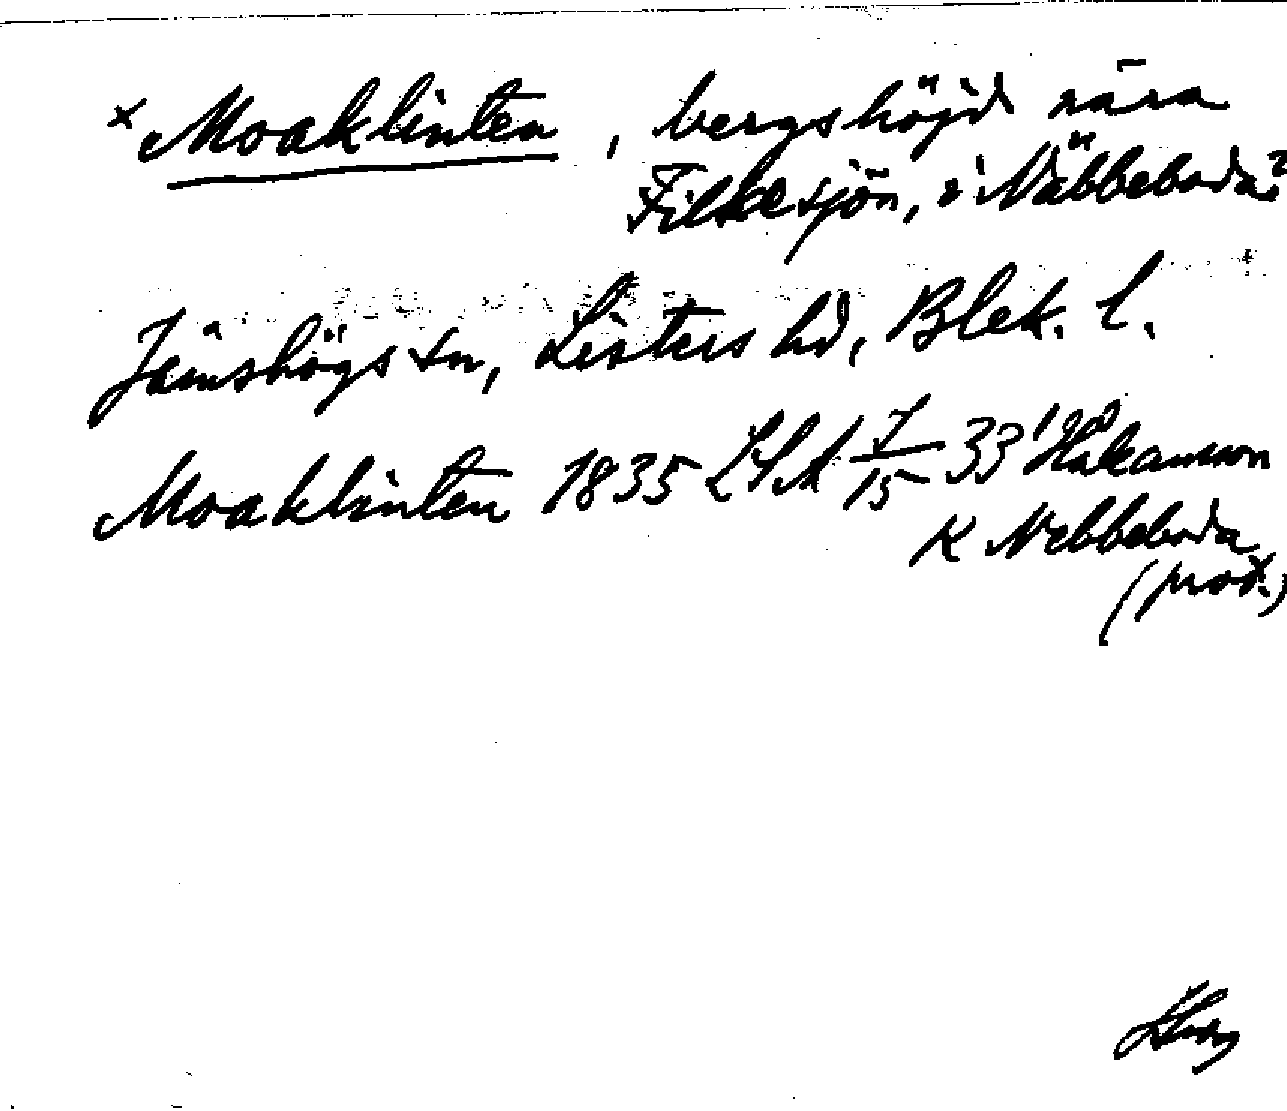 × Moaklinten, bergshöjd nära
Filkesjön, i Näbbeboda?
Jämshögs sn, Listers hd, Blek. l.
Moaklinten 1835 LSA J/15 33' Håkansson
K Nebbeboda
(prot.)